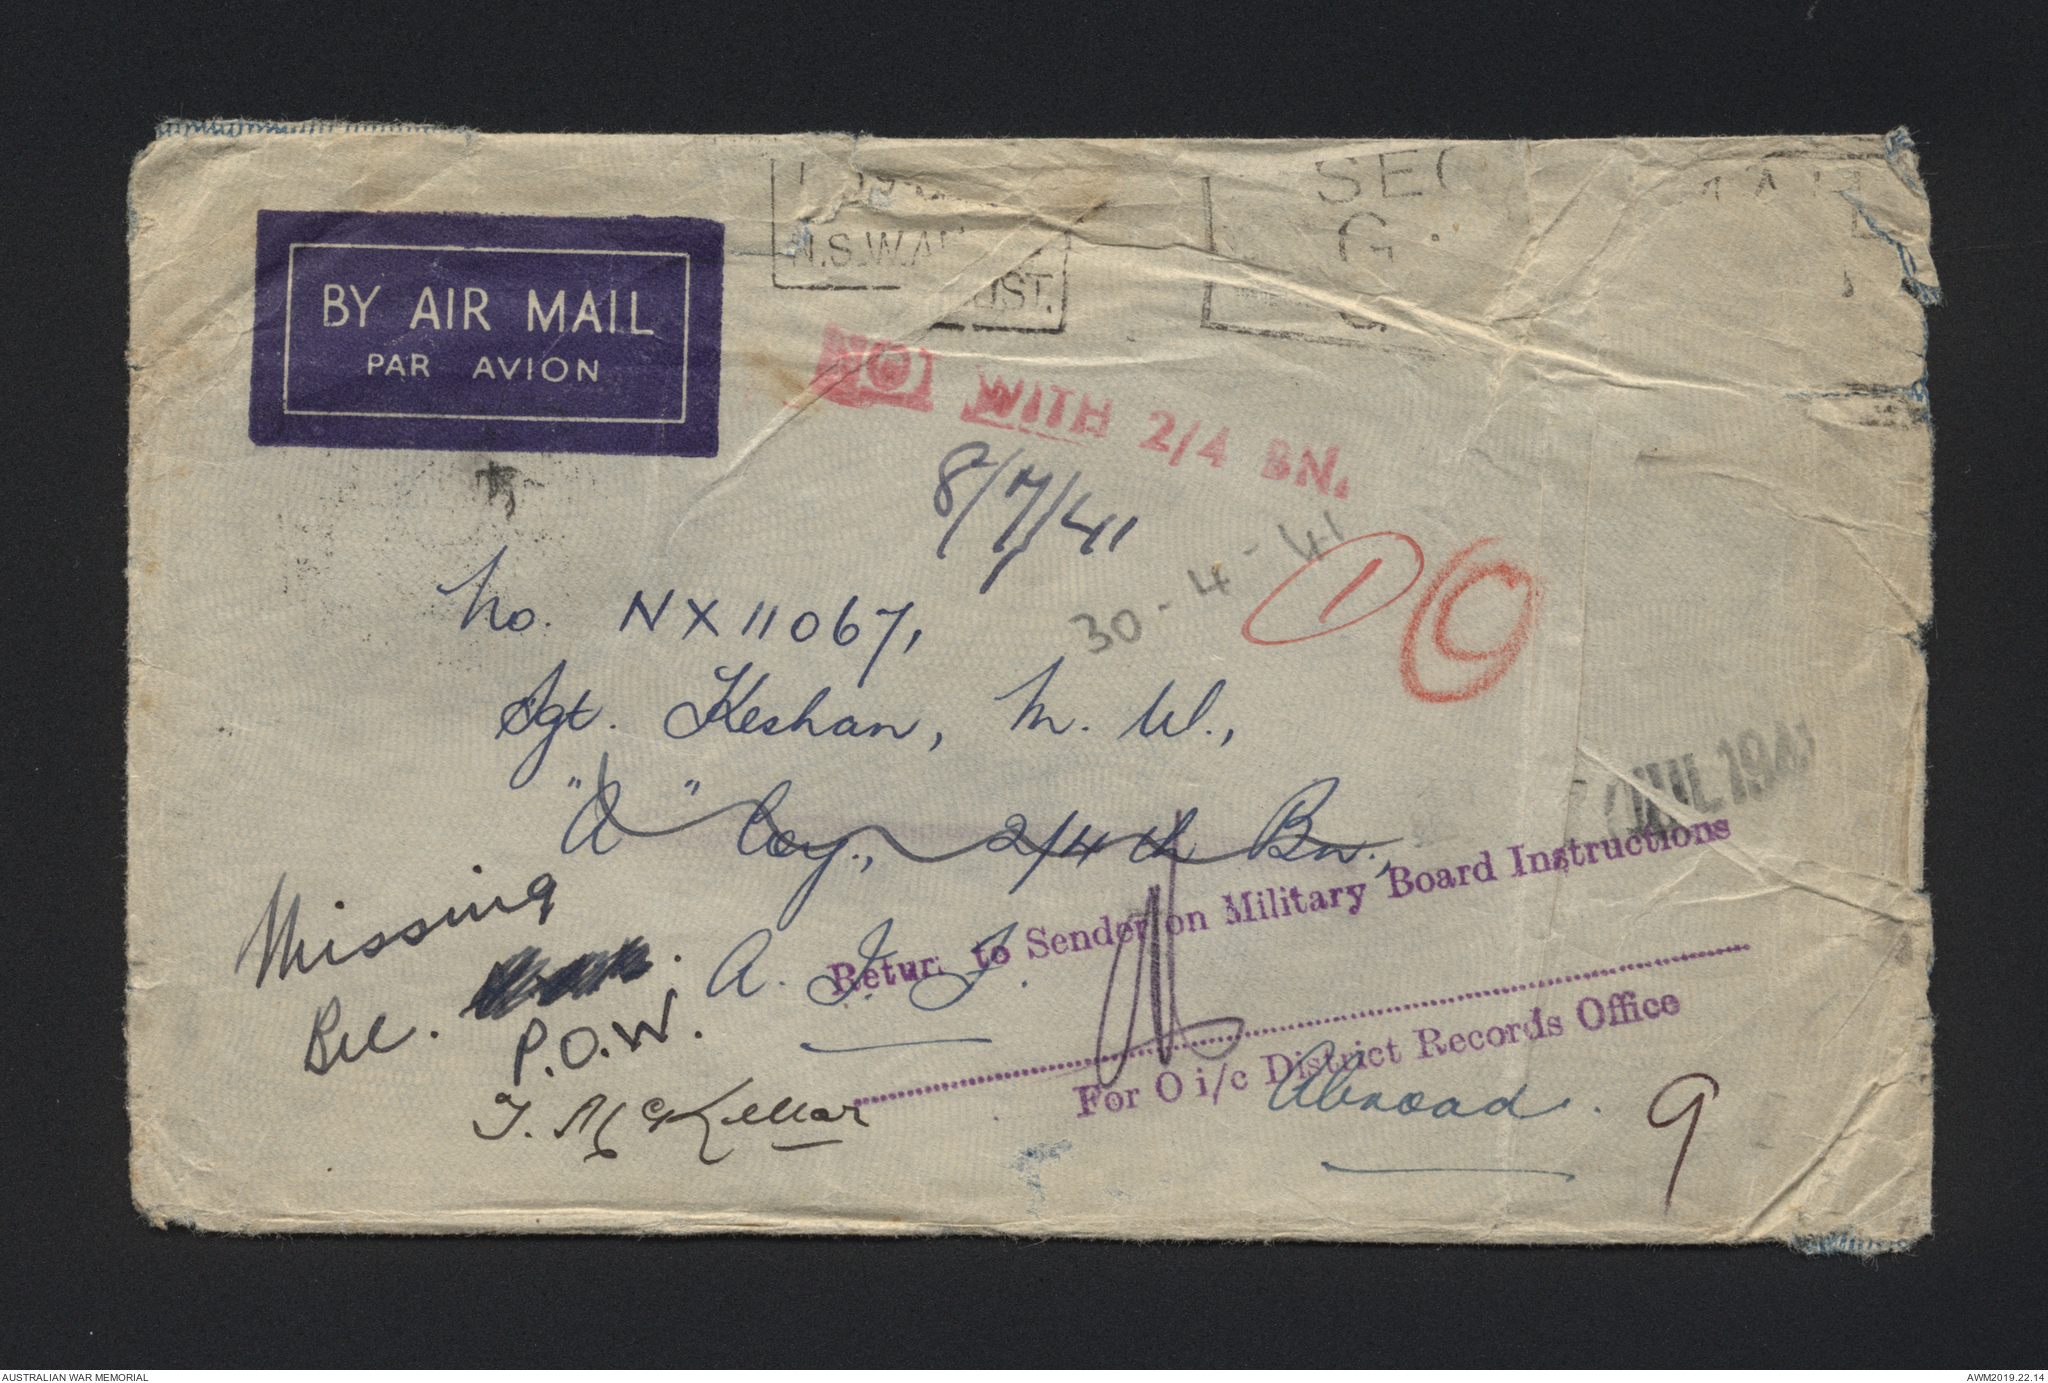 BY AIR MAIL
PAR AVION
N.S.W. AUST.
NOT WITH 2/4 BN.
8/7/41
30-4-41
1
No. NX11067,
Sgt. Keshan, M. W.,
"A" Coy., 2/4th Bn.,
A. I. F.
Abroad.
JUL 1941
Missing
Bel.
P.O.W.
J. McKellar
Return to Sender on Military Board Instructions
For O i/c District Records Office
9
AUSTRALIAN WAR MEMORIAL
AWM2019.22.14